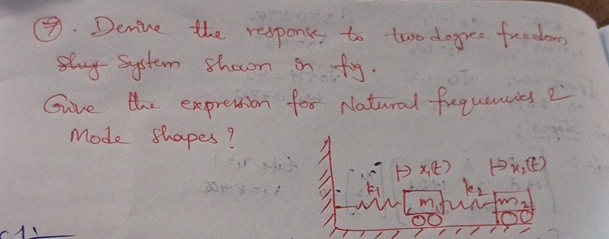 ⑦. Derive the response to two degree freedom
System shown in fig.
Give the expression for Natural frequencies &
Mode shapes?
x₁(t) x₂(t)
k₁ m₁ k₂ m₂